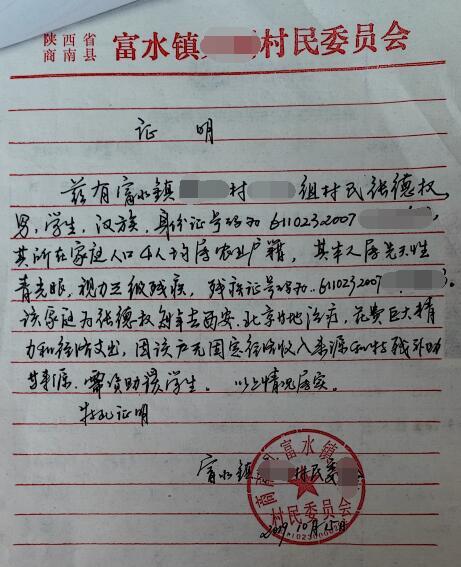 陕西省
商南县
富水镇 村民委员会
证 明
兹有富水镇 村 组村民张德权,
男,学生,汉族,身份证号码为 6110232007 ,
其所在家庭人口4人均属农业户籍,其本人属先天性
青光眼,视力三级残疾,残疾证号码为:6110232007
该家庭为张德权每年去西安、北京等地治疗,花费巨大精
力和经济支出,因该户无固定经济收入来源和
等来源,需资助该学生。以上情况属实。
特此证明
富水镇 村民委
商南 富水镇
村民委员会
2019年10月15日